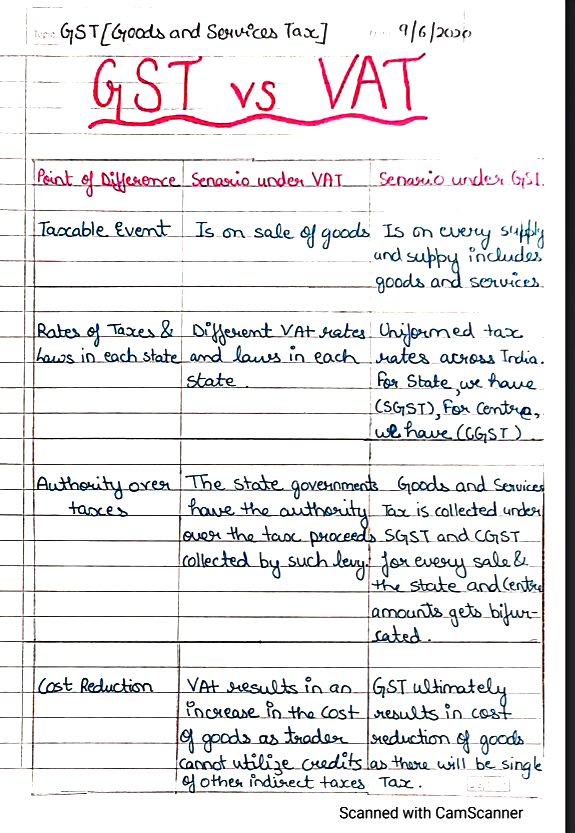 GST [Goods and Services Tax] 9/6/2020
GST vs VAT
Point of Difference Senario under VAT Senario under GST.
Taxable Event Is on sale of goods Is on every supply
and suppy includes
goods and services.
Rates of Taxes & Different VAT rates Uniformed tax
Laws in each state and laws in each rates across India.
state. For State, we have
(SGST), For Centre,
we have (CGST)
Authority over The state governments Goods and Services
taxes have the authority Tax is collected under
over the tax proceeds SGST and CGST
collected by such levy. for every sale &
the state and Centre
amounts gets bifur-
cated.
Cost Reduction VAT results in an GST ultimately
increase in the cost results in cost
of goods as trader reduction of goods
cannot utilize credits as there will be single
of other indirect taxes Tax.
Scanned with CamScanner